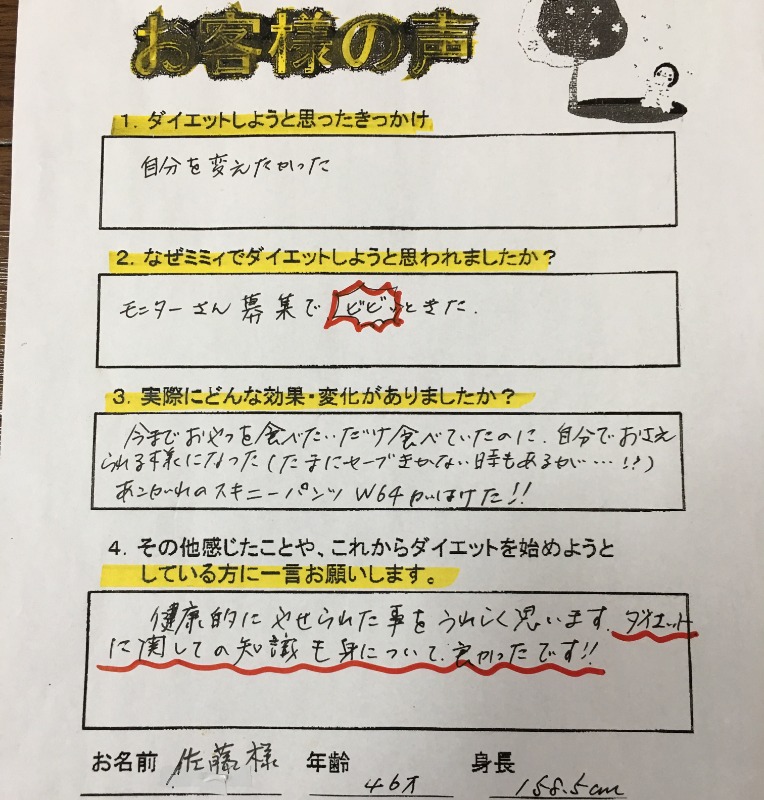 お客様の声
1. ダイエットしようと思ったきっかけ
自分を変えたかった
2. なぜミミィでダイエットしようと思われましたか？
モニターさん募集でビビッときた.
3. 実際にどんな効果・変化がありましたか？
今までおやつを食べたいだけ食べていたのに、自分でおさえ
られる様になった(たまにセーブきかない時もあるが…!?)
あこがれのスキニーパンツ W64がはけた!!
4. その他感じたことや、これからダイエットを始めようと
している方に一言お願いします。
健康的にやせられた事をうれしく思います. ダイエット
に関しての知識も身について、良かったです!!
お名前 佐藤様 年齢 46才 身長 158.5cm